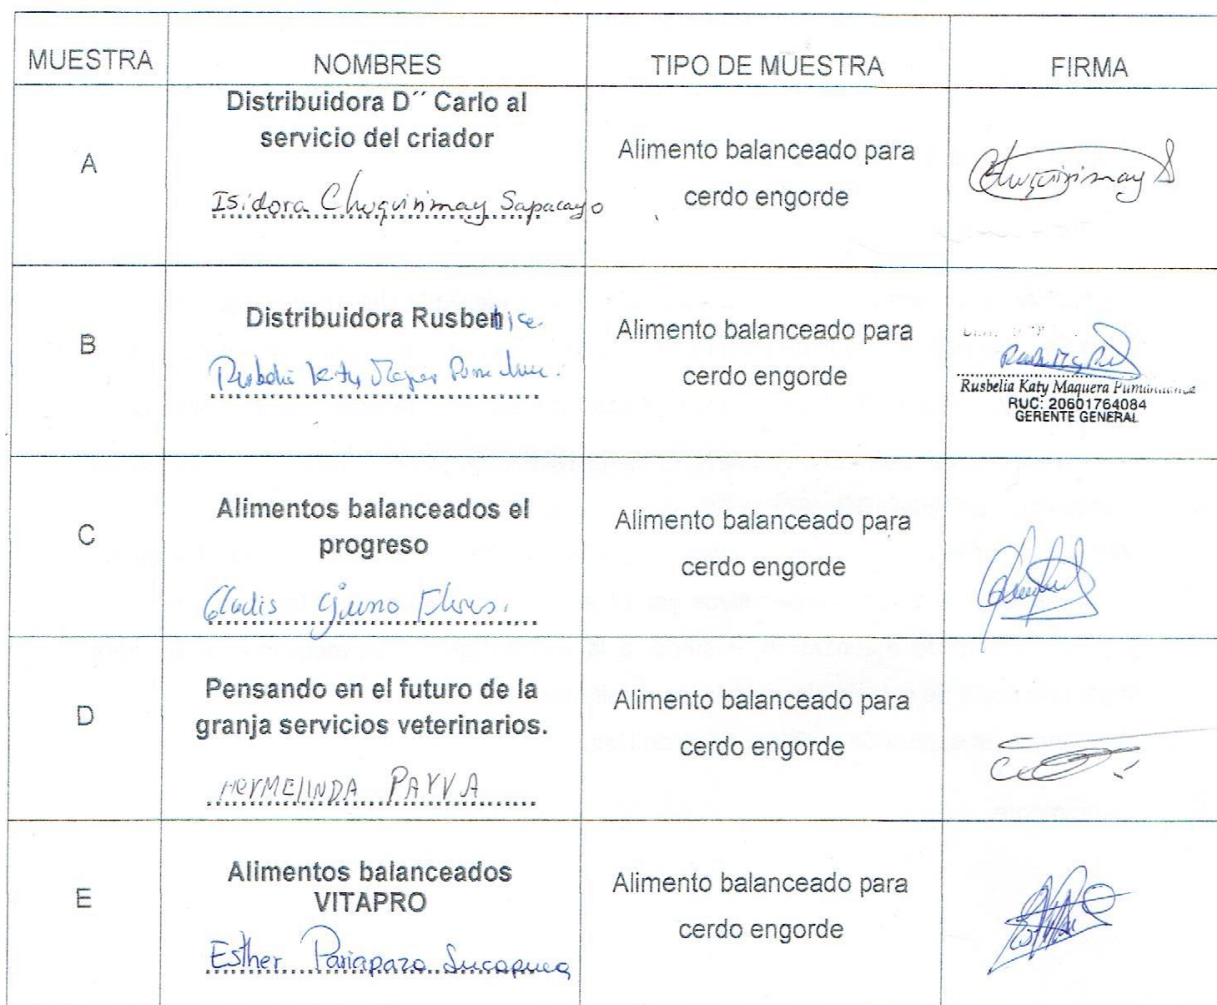 MUESTRA NOMBRES TIPO DE MUESTRA FIRMA
A
Distribuidora D´´ Carlo al
servicio del criador
Isidora Choquirimay Sapacayo
Alimento balanceado para
cerdo engorde
Choquirimay S
B
Distribuidora Rusben
Katy
Alimento balanceado para
cerdo engorde
Rusbelia Katy Maquera
RUC: 20601764084
GERENTE GENERAL
C
Alimentos balanceados el
progreso
Gladis Flores.
Alimento balanceado para
cerdo engorde
D
Pensando en el futuro de la
granja servicios veterinarios.
HERMELINDA PAYVA
Alimento balanceado para
cerdo engorde
E
Alimentos balanceados
VITAPRO
Esther Pariapaza Sucapuca
Alimento balanceado para
cerdo engorde